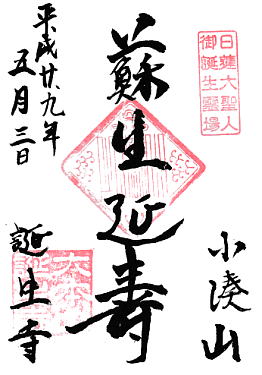 日蓮大聖人
御誕生霊場
小湊山
蘇生延壽
誕生寺
平成廿九年
五月三日